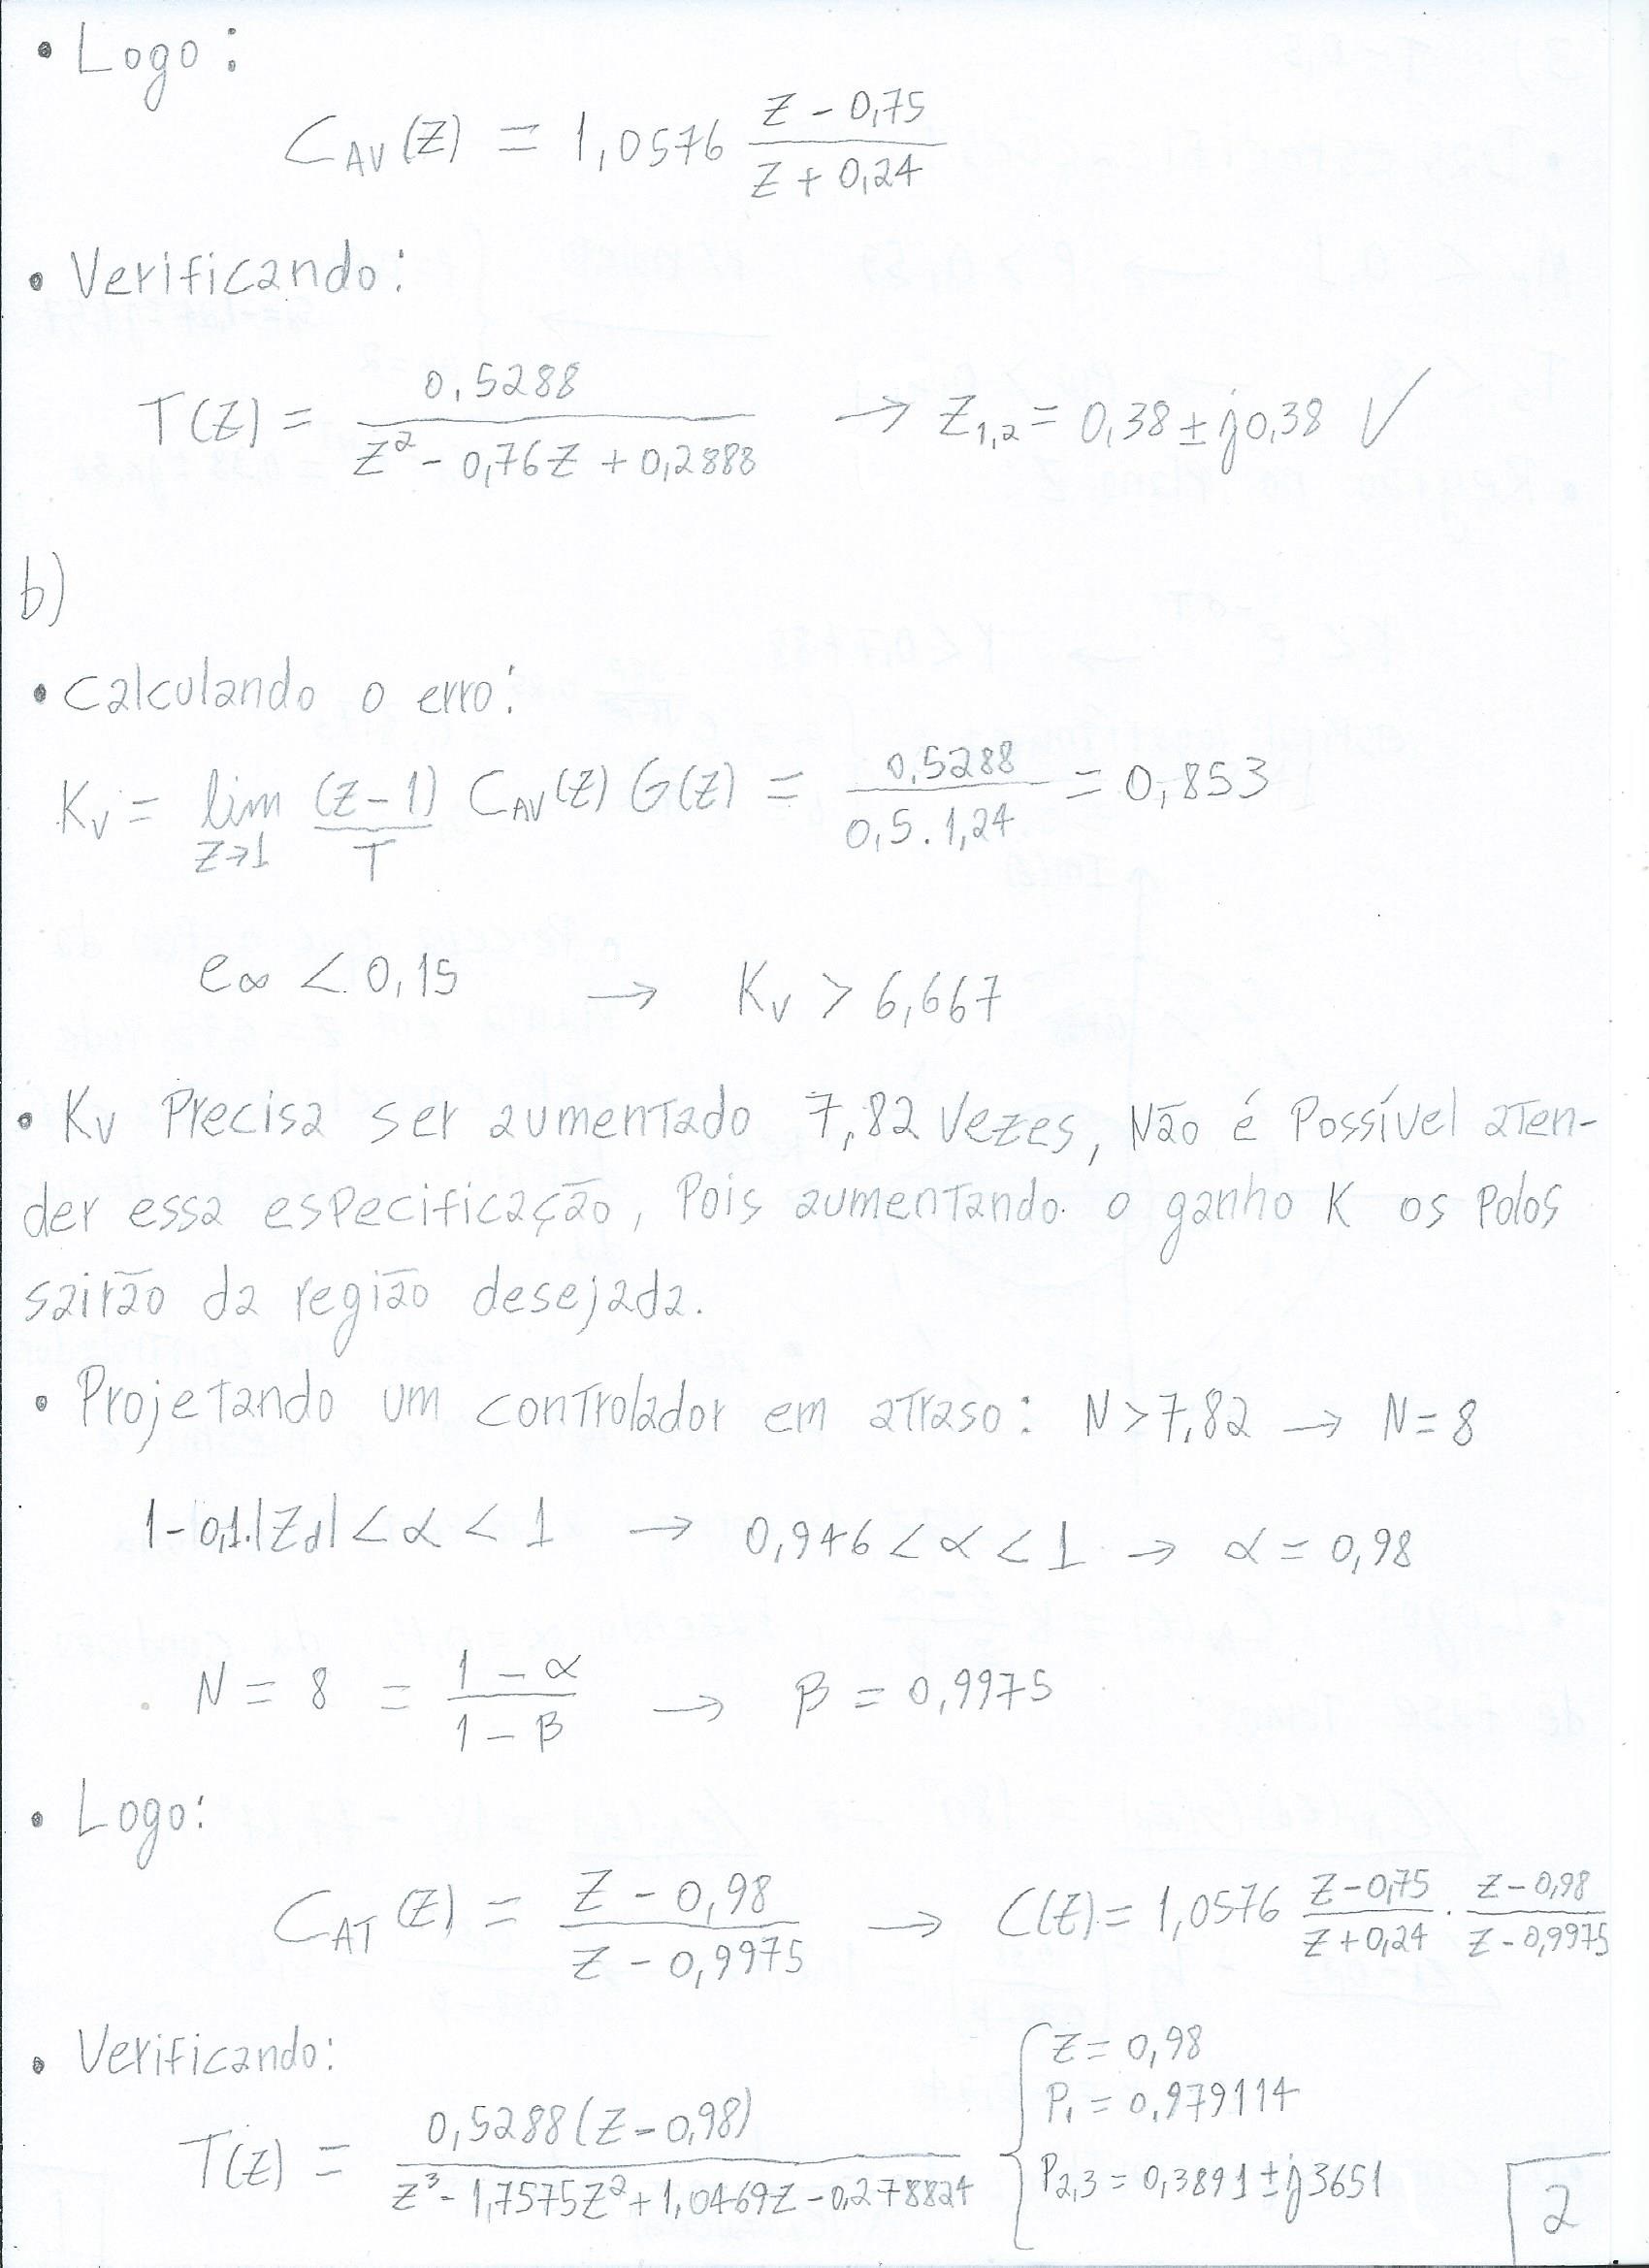 • Logo:
C_AV(z) = 1,0576 (z - 0,75)/(z + 0,24)
• Verificando:
T(z) = 0,5288/(z² - 0,76z + 0,2888) → z_1,2 = 0,38 ± j0,38 ✓
b)
• Calculando o erro:
K_v = lim_{z→1} (z-1)/T C_AV(z) G(z) = 0,5288/(0,5 . 1,24) = 0,853
e∞ < 0,15 → K_v > 6,667
• Kv Precisa ser aumentado 7,82 Vezes, Não é Possível aten-
der essa especificação, Pois aumentando o ganho K os Polos
sairão da região desejada.
• Projetando um controlador em atraso: N > 7,82 → N = 8
1 - 0,1.|Zd| < α < 1 → 0,946 < α < 1 → α = 0,98
N = 8 = (1 - α)/(1 - β) → β = 0,9975
• Logo:
C_AT(z) = (z - 0,98)/(z - 0,9975) → C(z) = 1,0576 (z - 0,75)/(z + 0,24) . (z - 0,98)/(z - 0,9975)
• Verificando:
T(z) = 0,5288(z - 0,98)/(z³ - 1,7575z² + 1,0469z - 0,278824) { z = 0,98
P_1 = 0,979114
P_2,3 = 0,3891 ± j3651
2